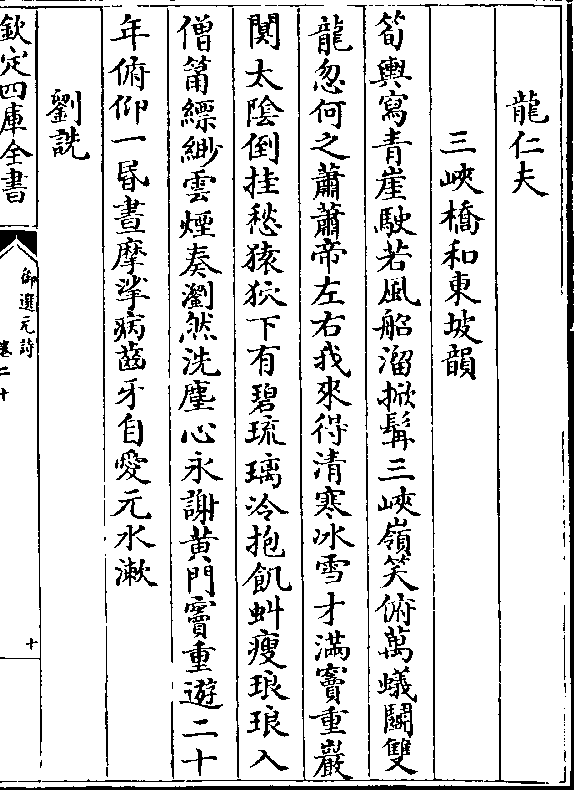 龍仁夫
三峽橋和東坡韻
筍輿寫青崖駛若風船溜掀髯三峽嶺笑俯萬蟻鬬雙
龍忽何之蕭蕭帝左右我來得清寒冰雪才滿竇重巖
閟太陰倒挂愁猿狖下有碧琉璃泠抱飢虯瘦琅琅入
僧箾縹緲雲煙奏瀏然洗塵心永謝黄門竇重遊二十
年俯仰一昏晝摩挲病齒牙自愛元水漱
劉詵
欽定四庫全書
御選元詩
卷二十
十